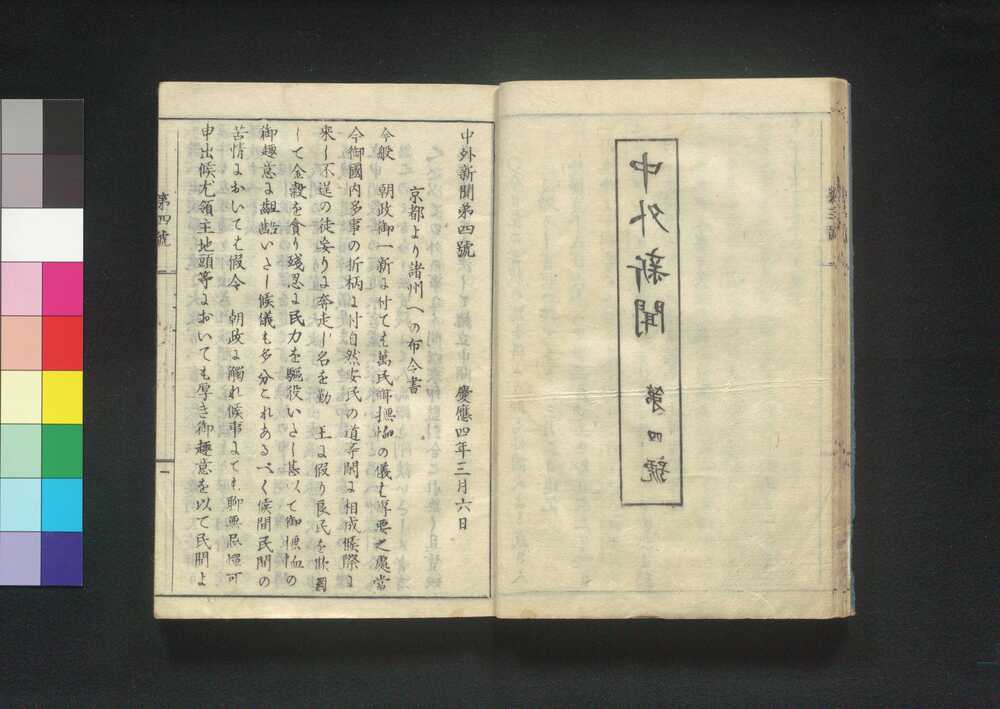 中外新聞
第四號
中外新聞第四號
慶應四年三月六日
京都より諸州への布令書
今般 朝政御一新に付ても萬民御撫恤の儀も専要之處當
今御國内多事の折柄に付自然安民の道等閑に相成候際に
来し不逞の徒妄りに奔走し名を勤 王に假り良民を欺罔
して金穀を貪り残忍に民力を驅役いたし甚しくて御撫血の
御趣意に齟齬いたし候儀も多分これあるべく候間民間の
苦情においても假令 朝政に觸れ候事にても聊無忌憚可
申出候尤領主地頭等においても厚き御趣意を以て民間よ
第四號
一